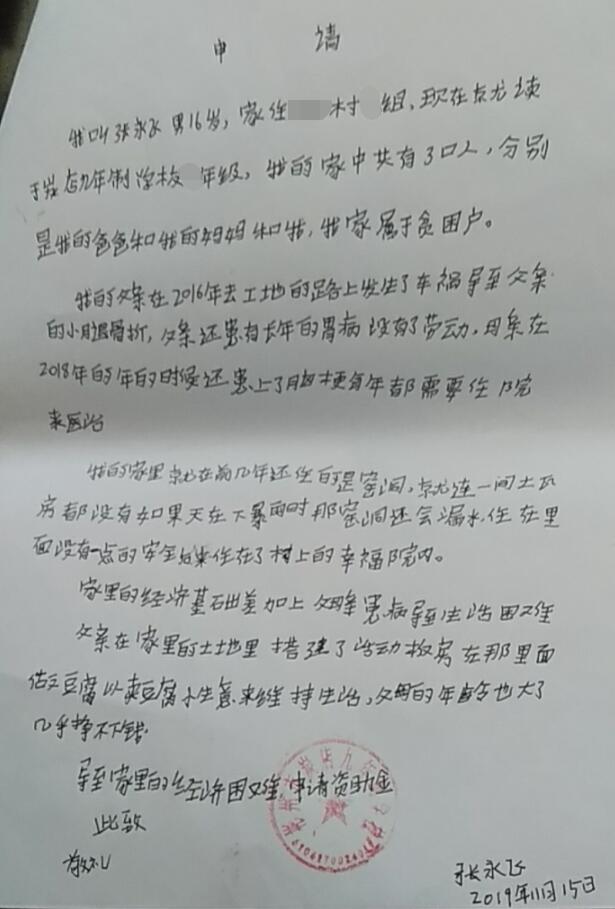 申 请
我叫张永飞 男16岁，家住 村 组，现在就读
于 九年制学校 年级，我的家中共有3口人，分别
是我的爸爸和我的妈妈和我，我家属于贫困户。
我的父亲在2016年去工地的路上发生了车祸导至父亲
的小腿骨折，父亲还患有长年的胃病没有了劳动，母亲在
2018年的年的时候还患上了脑梗每年都需要住院
来医治
我的家里就在前几年还住的是窑洞，就连一间土瓦
房都没有如果天在下暴雨时那窑洞还会漏水，住在里
面没有一点的安全后来住在了村上的幸福院内。
家里的经济基础差加上父母亲患病导至生活困难
父亲在家里的土地里搭建了活动板房在那里面
做豆腐以卖豆腐小生意来维持生活，父母的年龄也大了
几乎挣不下钱.
导至家里的经济困难，申请资助金
此致
敬礼
张永飞
2019年11月15日